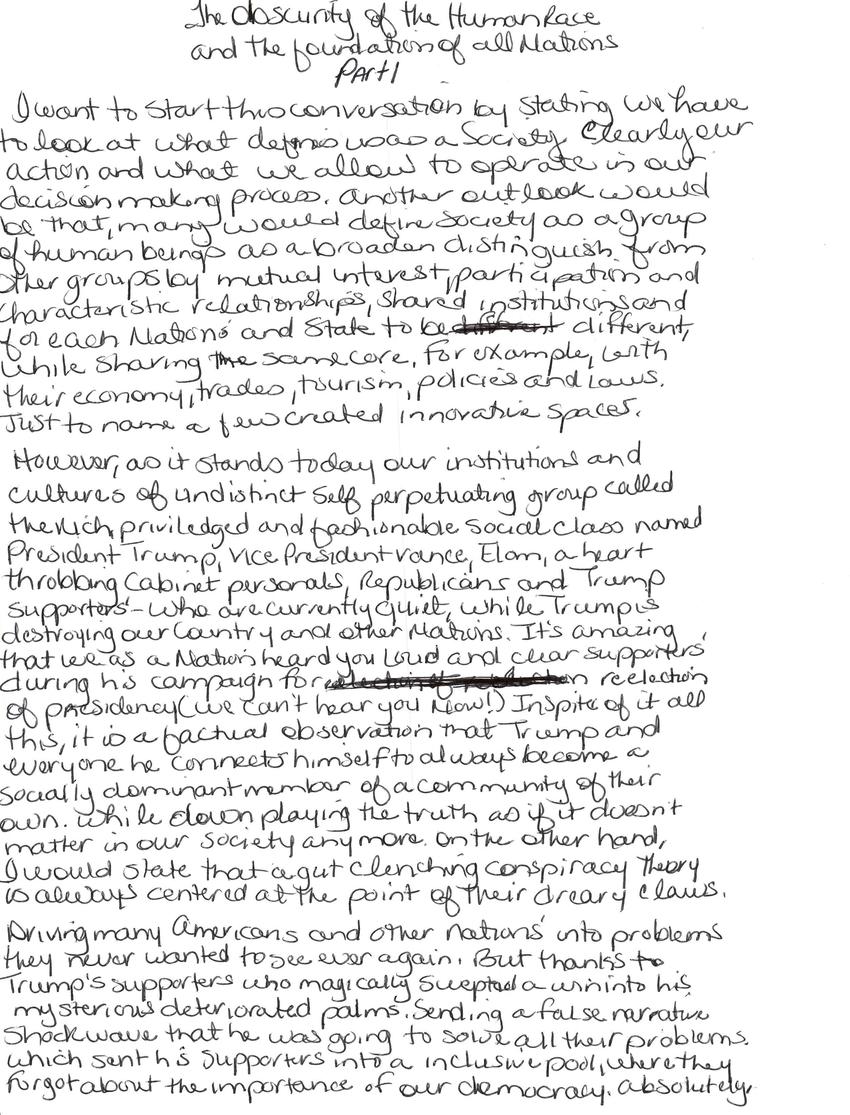 The obscurity of the Human Race
and the foundation of all Nations
Part 1
I want to start this conversation by stating we have
to look at what defines us as a Society. Clearly our
action and what we allow to operate is our
decision making process. Another outlook would
be that, many would define Society as a group
of human beings as a broaden distinguish from
other groups by mutual interest, participation and
characteristic relationships, shared institutions and
for each Nations and State to be different,
while sharing the same core. For example, with
their economy, trades, tourism, policies and Laws.
Just to name a few created innovative spaces.
However, as it stands today our institutions and
cultures of undistinct self perpetuating group called
the rich, priviledged and fashionable social class named
President Trump, Vice President Vance, Elon, a heart
throbbing Cabinet personals, Republicans and Trump
supporters - who are currently quiet, while Trump is
destroying our Country and other Nations. It's amazing
that we as a Nation heard you loud and clear supporters
during his campaign for reelection
of presidency (we can't hear you Now!) Inspite of it all
this, it is a factual observation that Trump and
everyone he connects himself to always become a
socially dominant member of a community of their
own. While down playing the truth as if it doesn't
matter in our Society anymore. On the other hand,
I would state that a gut clenching conspiracy theory
is always centered at the point of their dreary claws.
Driving many Americans and other nations' into problems
they never wanted to see ever again. But thanks to
Trump's supporters who magically swepted a win into his
mysterious deteriorated palms. Sending a false narrative
Shockwave that he was going to solve all their problems.
which sent his Supporters into a inclusive pool, where they
forgot about the importance of our democracy. Absolutely,